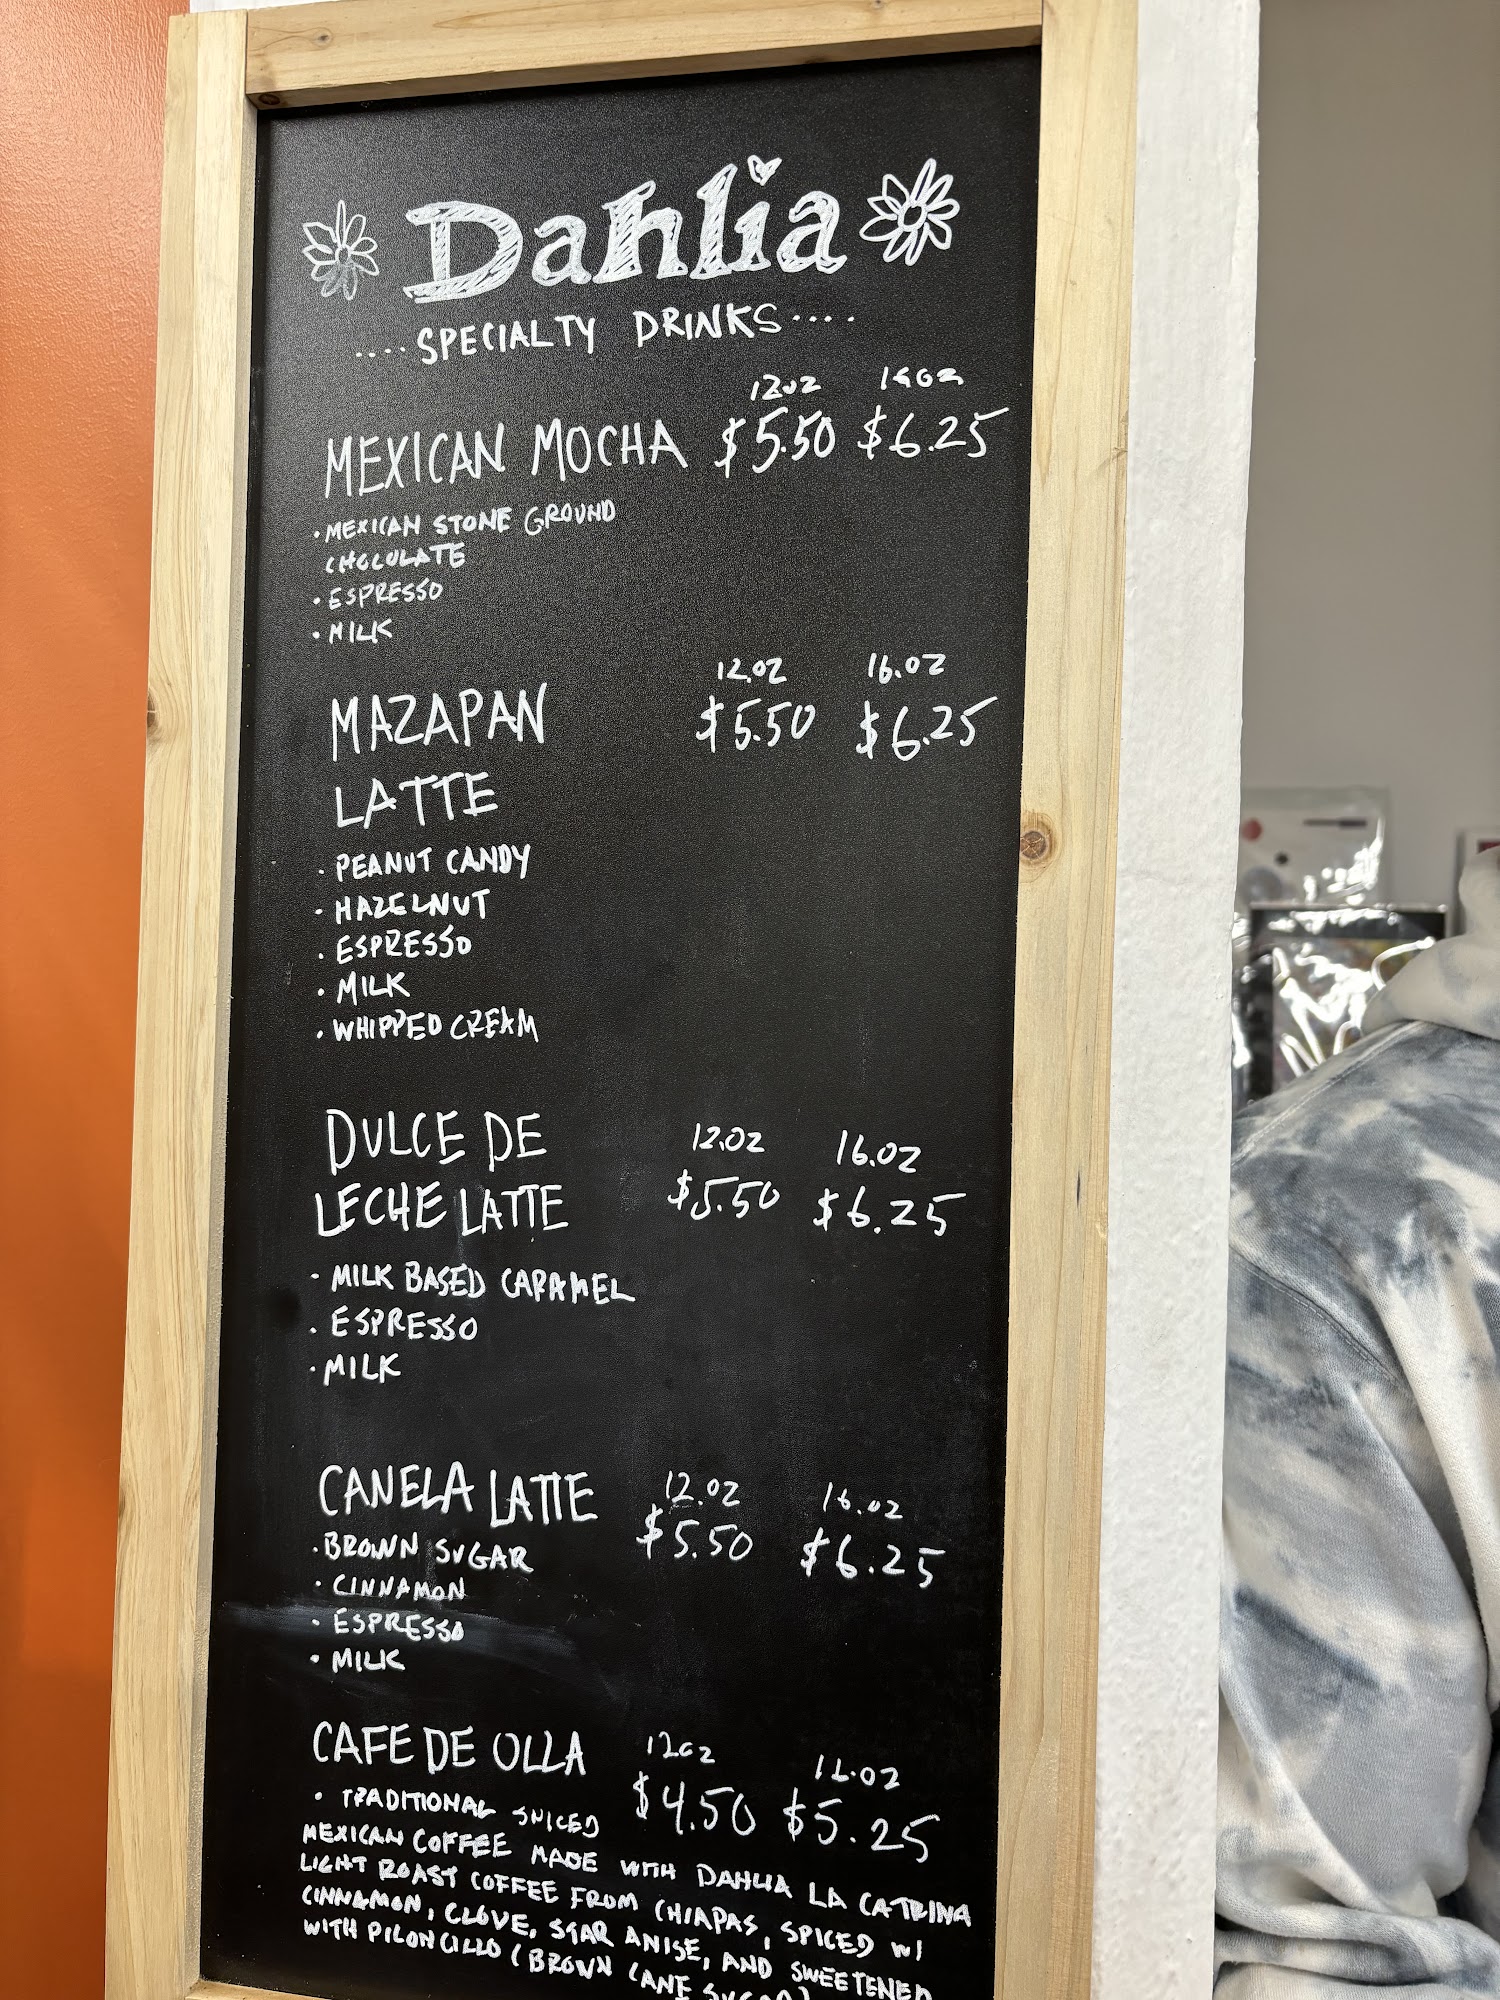 Dahlia
....SPECIALTY DRINKS....
12oz 16oz
MEXICAN MOCHA $5.50 $6.25
·MEXICAN STONE GROUND
CHOCOLATE
·ESPRESSO
·MILK
12.OZ 16.OZ
MAZAPAN $5.50 $6.25
LATTE
·PEANUT CANDY
·HAZELNUT
·ESPRESSO
·MILK
·WHIPPED CREAM
DULCE DE 12.OZ 16.OZ
LECHE LATTE $5.50 $6.25
·MILK BASED CARAMEL
·ESPRESSO
·MILK
CANELA LATTE 12.OZ 16.OZ
$5.50 $6.25
·BROWN SUGAR
·CINNAMON
·ESPRESSO
·MILK
CAFE DE OLLA 12oz 16.OZ
$4.50 $5.25
·TRADITIONAL SPICED
MEXICAN COFFEE MADE WITH DAHLIA LA CATRINA
LIGHT ROAST COFFEE FROM CHIAPAS, SPICED W/
CINNAMON, CLOVE, STAR ANISE, AND SWEETENED
WITH PILONCILLO (BROWN CANE SUGAR)